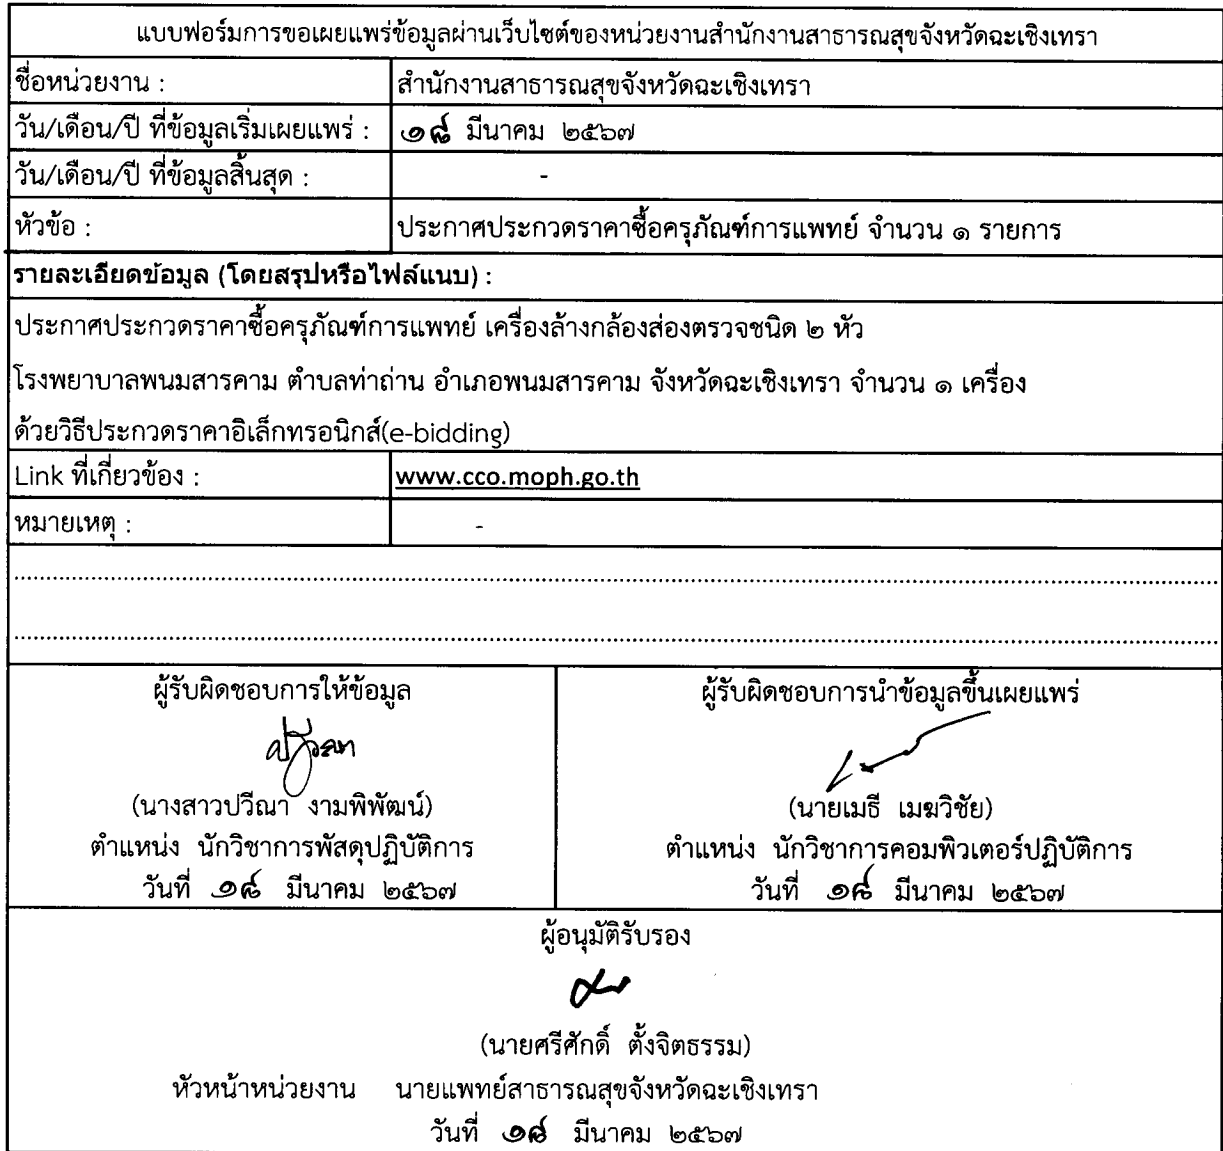 แบบฟอร์มการขอเผยแพร่ข้อมูลผ่านเว็บไซต์ของหน่วยงานสำนักงานสาธารณสุขจังหวัดฉะเชิงเทรา
ชื่อหน่วยงาน : สำนักงานสาธารณสุขจังหวัดฉะเชิงเทรา
วัน/เดือน/ปี ที่ข้อมูลเริ่มเผยแพร่ : ๑๘ มีนาคม ๒๕๖๗
วัน/เดือน/ปี ที่ข้อมูลสิ้นสุด : -
หัวข้อ : ประกาศประกวดราคาซื้อครุภัณฑ์การแพทย์ จำนวน ๑ รายการ
รายละเอียดข้อมูล (โดยสรุปหรือไฟล์แนบ) :
ประกาศประกวดราคาซื้อครุภัณฑ์การแพทย์ เครื่องล้างกล้องส่องตรวจชนิด ๒ หัว
โรงพยาบาลพนมสารคาม ตำบลท่าถ่าน อำเภอพนมสารคาม จังหวัดฉะเชิงเทรา จำนวน ๑ เครื่อง
ด้วยวิธีประกวดราคาอิเล็กทรอนิกส์(e-bidding)
Link ที่เกี่ยวข้อง : www.cco.moph.go.th
หมายเหตุ : -
ผู้รับผิดชอบการให้ข้อมูล ผู้รับผิดชอบการนำข้อมูลขึ้นเผยแพร่
(นางสาวปวีณา งามพิพัฒน์) (นายเมธี เมฆวิชัย)
ตำแหน่ง นักวิชาการพัสดุปฏิบัติการ ตำแหน่ง นักวิชาการคอมพิวเตอร์ปฏิบัติการ
วันที่ ๑๘ มีนาคม ๒๕๖๗ วันที่ ๑๘ มีนาคม ๒๕๖๗
ผู้อนุมัติรับรอง
(นายศรีศักดิ์ ตั้งจิตธรรม)
หัวหน้าหน่วยงาน นายแพทย์สาธารณสุขจังหวัดฉะเชิงเทรา
วันที่ ๑๘ มีนาคม ๒๕๖๗